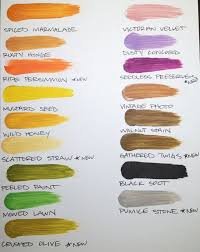 SPICED MARMALADE
RUSTY HINGE
RIPE PERSIMMON *NEW
MUSTARD SEED
WILD HONEY
SCATTERED STRAW *NEW
PEELED PAINT
MOWED LAWN
CRUSHED OLIVE *NEW
VICTORIAN VELVET
DUSTY CONCORD
SEEDLESS PRESERVES *NEW
VINTAGE PHOTO
WALNUT STAIN
GATHERED TWIGS *NEW
BLACK SOOT
PUMICE STONE *NEW